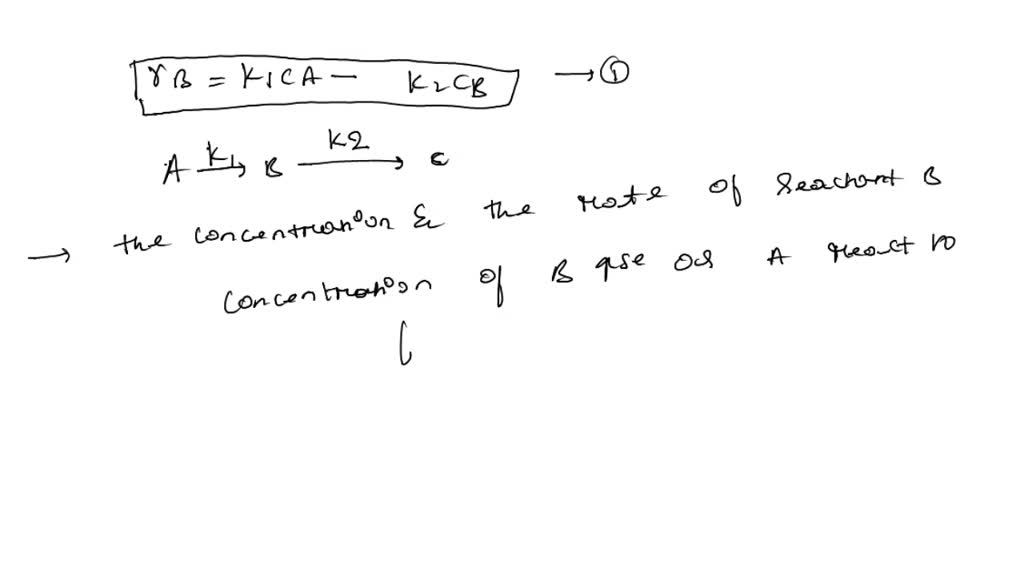 rB = K1CA - K2CB → ①
A K1→ B K2→ c
→ the concentration & the rate of reactant B
concentration of B as A react to
(